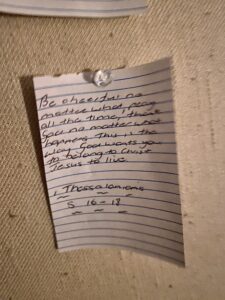 Be cheerful no
matter what pray
all the time, thank
God no matter what
happens This is the
way God wants you
to belong to Christ
Jesus to live
1 Thessalonians
5 16-18